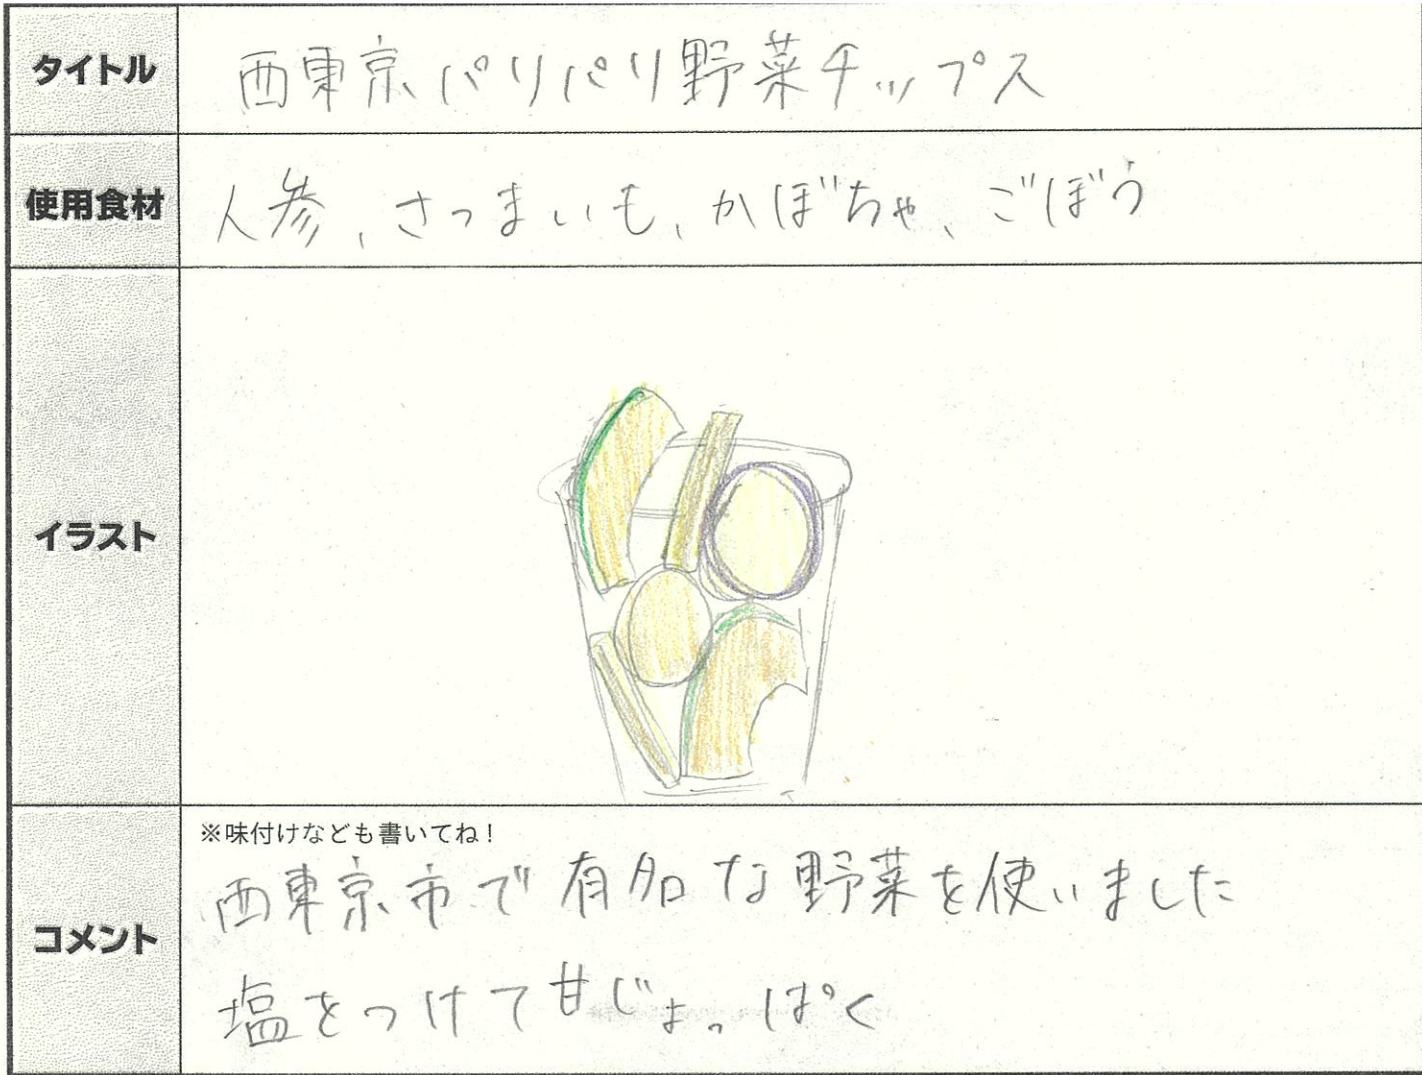 タイトル
西東京パリパリ野菜チップス
使用食材
人参、さつまいも、かぼちゃ、ごぼう
イラスト
コメント
※味付けなども書いてね！
西東京市で有名な野菜を使いました
塩をつけて甘じょっぱく